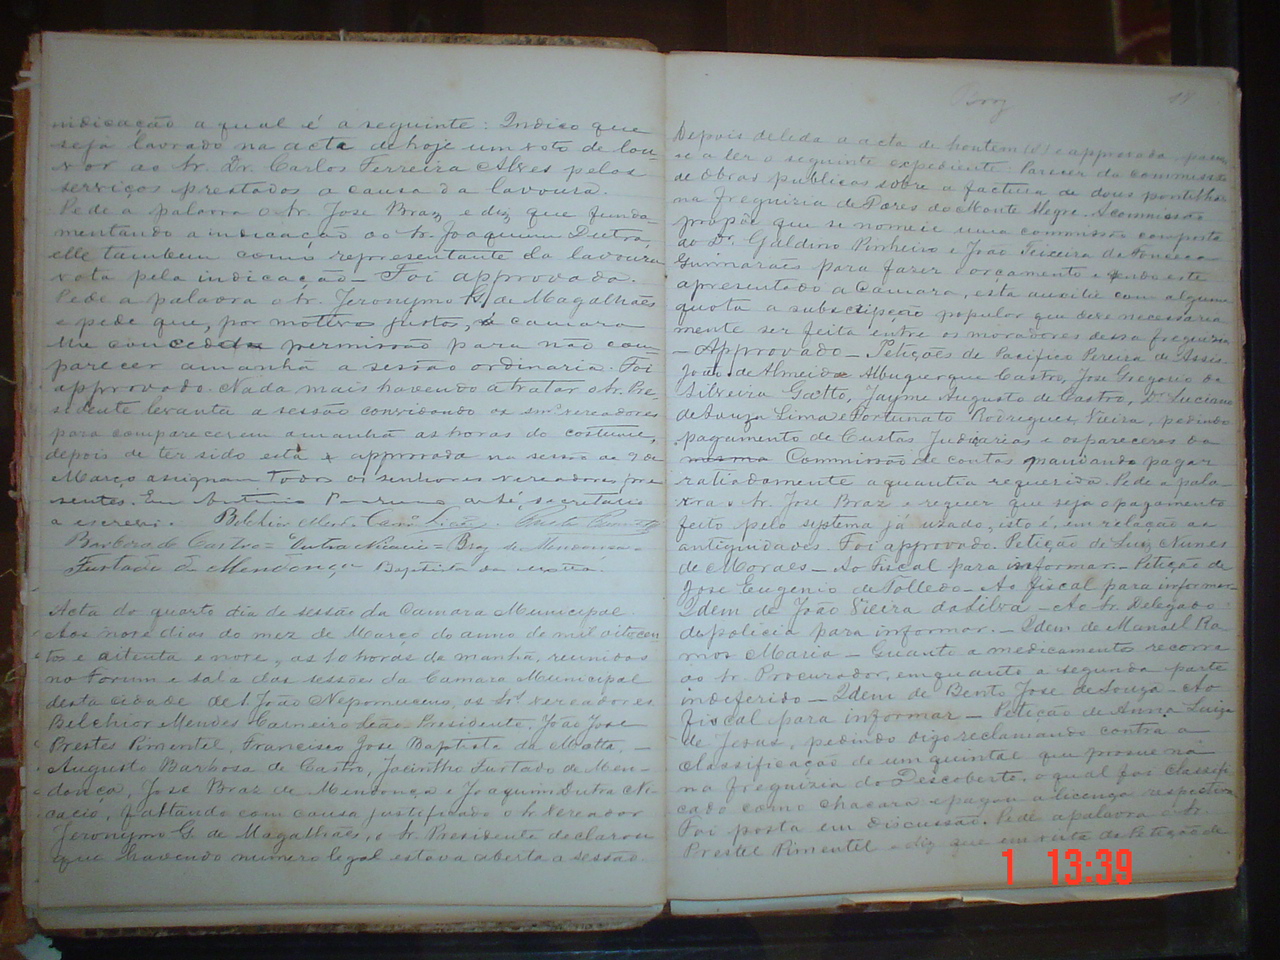 indicação a qual é a seguinte: Indico que
seja lavrado na acta de hoje um voto de lou-
vor ao Sr. Dr. Carlos Ferreira Alves pelos
serviços prestados a causa da lavoura.
Pede a palavra o Sr. Jose Braz e diz que funda-
mentando a indicação do Sr. Joaquim Dutra,
elle tambem como representante da lavoura
vota pela indicação - Foi approvado.
Pede a palavra o Sr. Jeronymo G. de Magalhães
e pede que, por motivos justos, a camara
lhe conceda permissão para não com-
parecer amanhã a sessão ordinaria. Foi
approvado. Nada mais havendo a tratar o Sr. Pre-
sidente levanta a sessão convidando os snrs. vereadores
para comparecerem amanhã as horas do costume,
depois de ter sido esta approvada na sessão de 9 de
Março assignam todos os senhores vereadores pre-
sentes. Eu Antonio secretario
a escrevi. Belchior Mendes Carneiro Leão.
Barbosa de Castro = Dutra Nicacio = Braz de Mendonça =
Furtado de Mendonça Baptista da Motta.
Acta do quarto dia de sessão da Camara Municipal
Aos nove dias do mez de Março do anno de mil oitocen-
tos e oitenta e nove, as 10 horas da manhã, reunidos
no Forum e sala das sessões da Camara Municipal
desta cidade de S. João Nepomuceno, os Srs. vereadores
Belchior Mendes Carneiro Leão, Presidente, João José
Prestes Pimentel, Francisco Jose Baptista da Motta, -
Augusto Barbosa de Castro, Jacintho Furtado de Men-
donça, Jose Braz de Mendonça e Joaquim Dutra Ni-
cacio, faltando com causa justificada o Sr. Vereador
Jeronymo G. de Magalhães, o Sr. Presidente declarou
que havendo numero legal estava aberta a sessão.
Braz 18
Depois de lida a acta de hontem (8) e approvada passou-
se a ler o seguinte expediente: Parecer da commissão
de Obras publicas sobre a factura de dous pontilhões
na freguizia de Dores do Monte Alegre. A commissão
propõe que se nomeie uma commissão composta
do Dr. Galdino Pinheiro e João Teixeira da Fonseca
Guimarães para fazer o orçamento e sendo este
apresentado a Camara, esta auxilie com alguma
quota a subscripção popular que deve necessaria-
mente ser feita entre os moradores dessa freguizia
- Approvado - Petições de Pacifico Pereira de Assis
João de Almeida Albuquerque Castro, Jose Gregorio da
Silveira Gatto, Jayme Augusto de Castro, Dr. Luciano
de Souza Lima e Fortunato Rodrigues Vieira, pedindo
pagamento de Custas Judiciarias e os pareceres da
mesma Commissão de contas mandando pagar
ratiadamente a quantia requerida. Pede a pala-
vra o Sr. Jose Braz e requer que seja o pagamento
feito pelo systema já usado, isto é, em relação as
antiguidades. Foi approvado. Petição de Luiz Nunes
de Moraes - Ao Fiscal para informar. - Petição de
Jose Eugenio de Tolledo - Ao fiscal para informar.
Idem de João Vieira da Silva - Ao Sr. Delegado
da policia para informar. - Idem de Manoel Ra-
mos Maria - Quanto a medicamento recorra
ao Sr. Procurador, emquanto a segunda parte
indeferido - Idem de Bento Jose de Souza - Ao
fiscal para informar - Petição de Anna Luiza
de Jesus, pedindo digo reclamando contra a
classificação de um quintal que possue na
na freguizia do Descoberto, o qual foi classifi-
cado como chacara e pagou a licença respectiva
Foi posta em discussão. Pede a palavra o Sr.
Prestes Pimentel e diz que em vista da Petição de
1 13:39